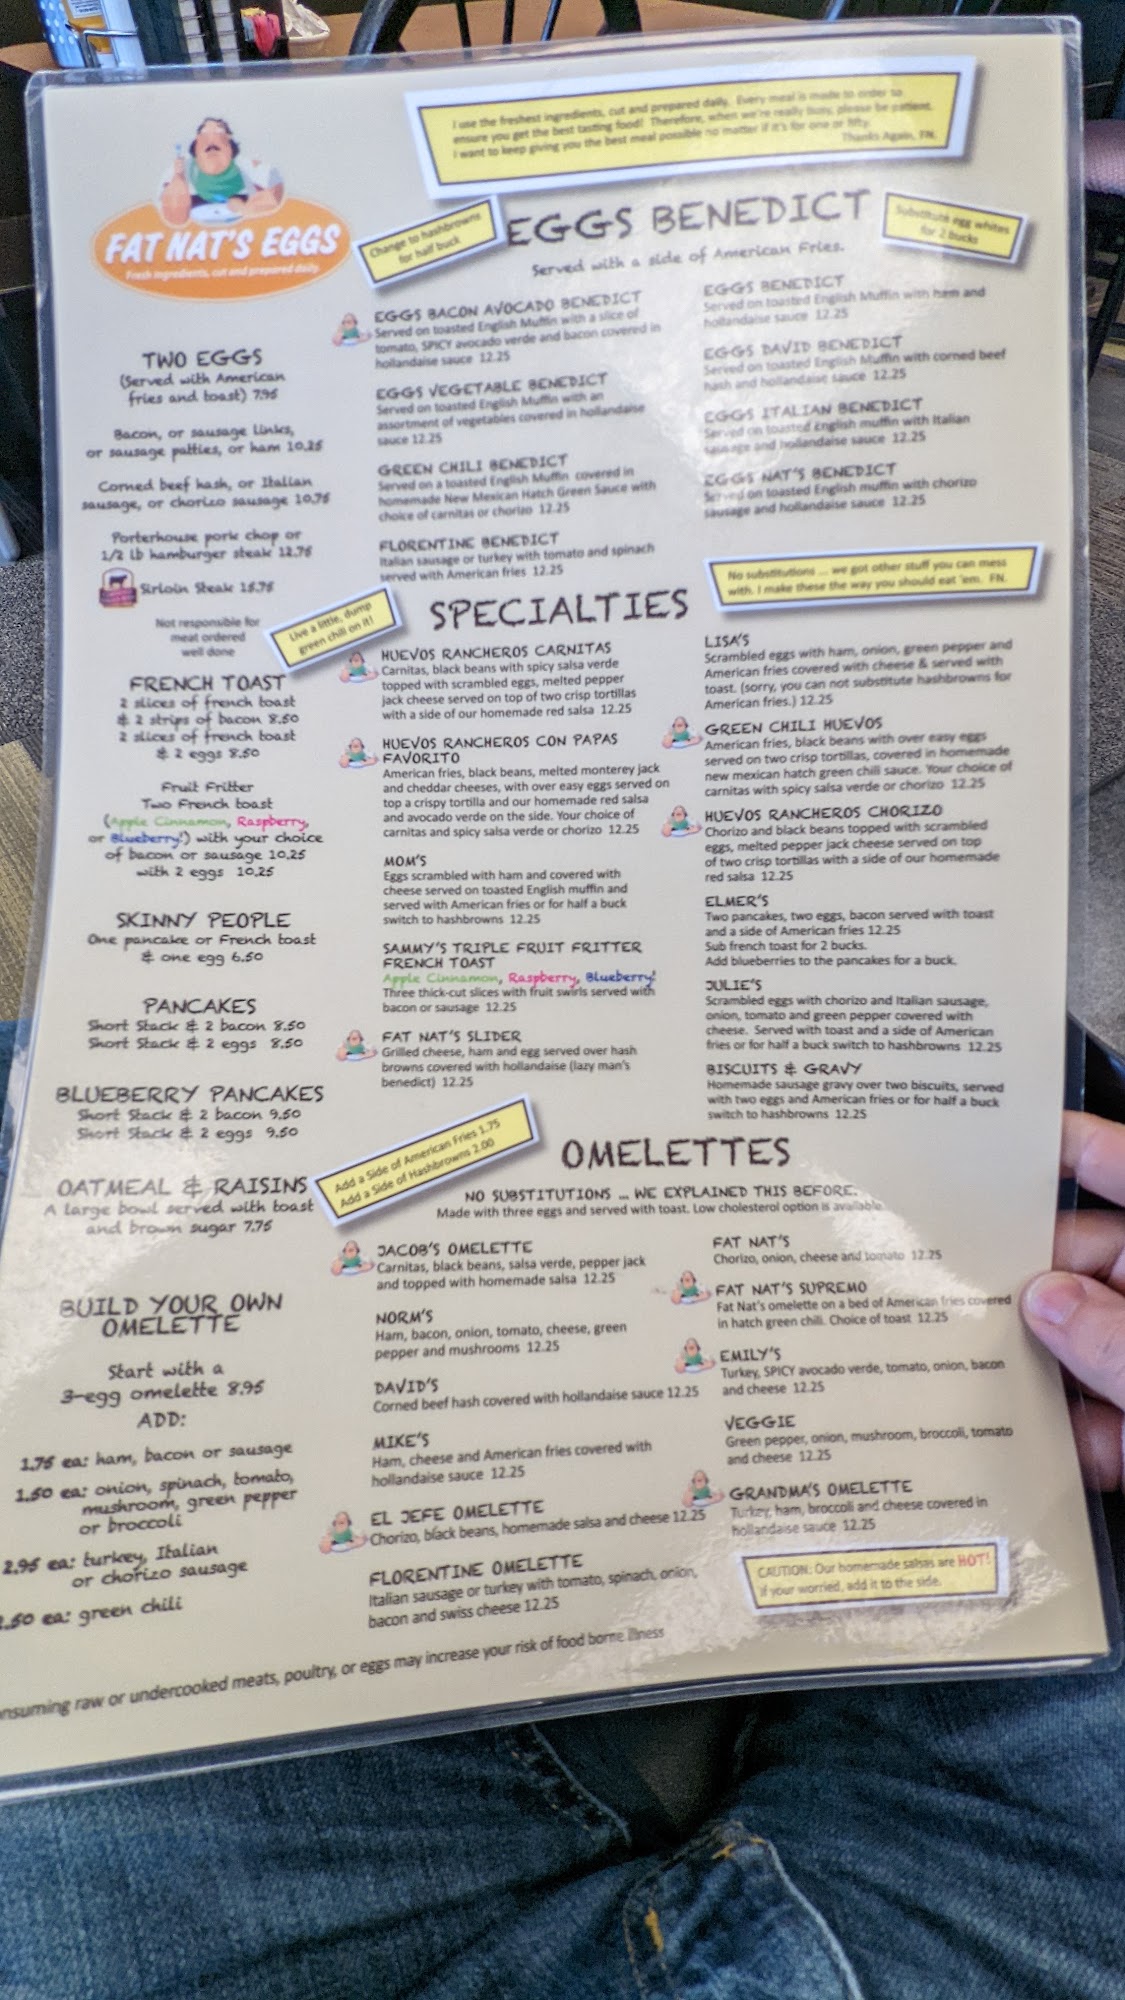 I use the freshest ingredients, cut and prepared daily. Every meal is made to order to
ensure you get the best tasting food! Therefore, when we're really busy, please be patient.
I want to keep giving you the best meal possible no matter if it's for one or fifty.
Thanks Again, FN.
FAT NAT'S EGGS
Fresh ingredients, cut and prepared daily.
TWO EGGS
(Served with American
fries and toast) 7.95
Bacon, or sausage links,
or sausage patties, or ham 10.25
Corned beef hash, or Italian
sausage, or chorizo sausage 10.75
Porterhouse pork chop or
1/2 lb hamburger steak 12.75
Sirloin Steak 15.75
Not responsible for
meat ordered
well done
FRENCH TOAST
2 slices of french toast
& 2 strips of bacon 8.50
2 slices of french toast
& 2 eggs 8.50
Fruit Fritter
Two French toast
(Apple Cinnamon, Raspberry,
or Blueberry!) with your choice
of bacon or sausage 10.25
with 2 eggs 10.25
SKINNY PEOPLE
One pancake or French toast
& one egg 6.50
PANCAKES
Short Stack & 2 bacon 8.50
Short Stack & 2 eggs 8.50
BLUEBERRY PANCAKES
Short Stack & 2 bacon 9.50
Short Stack & 2 eggs 9.50
OATMEAL & RAISINS
A large bowl served with toast
and brown sugar 7.75
BUILD YOUR OWN
OMELETTE
Start with a
3-egg omelette 8.95
ADD:
1.75 ea: ham, bacon or sausage
1.50 ea: onion, spinach, tomato,
mushroom, green pepper
or broccoli
2.95 ea: turkey, Italian
or chorizo sausage
.50 ea: green chili
Change to hashbrowns
for half buck
EGGS BENEDICT
Substitute egg whites
for 2 bucks
Served with a side of American Fries.
EGGS BACON AVOCADO BENEDICT
Served on toasted English Muffin with a slice of
tomato, SPICY avocado verde and bacon covered in
hollandaise sauce 12.25
EGGS VEGETABLE BENEDICT
Served on toasted English Muffin with an
assortment of vegetables covered in hollandaise
sauce 12.25
GREEN CHILI BENEDICT
Served on a toasted English Muffin covered in
homemade New Mexican Hatch Green Sauce with
choice of carnitas or chorizo 12.25
FLORENTINE BENEDICT
Italian sausage or turkey with tomato and spinach
served with American fries 12.25
EGGS BENEDICT
Served on toasted English Muffin with ham and
hollandaise sauce 12.25
EGGS DAVID BENEDICT
Served on toasted English Muffin with corned beef
hash and hollandaise sauce 12.25
EGGS ITALIAN BENEDICT
Served on toasted English muffin with Italian
sausage and hollandaise sauce 12.25
EGGS NAT'S BENEDICT
Served on toasted English muffin with chorizo
sausage and hollandaise sauce 12.25
Live a little, dump
green chili on it!
SPECIALTIES
No substitutions ... we got other stuff you can mess
with. I make these the way you should eat 'em. FN.
HUEVOS RANCHEROS CARNITAS
Carnitas, black beans with spicy salsa verde
topped with scrambled eggs, melted pepper
jack cheese served on top of two crisp tortillas
with a side of our homemade red salsa 12.25
HUEVOS RANCHEROS CON PAPAS
FAVORITO
American fries, black beans, melted monterey jack
and cheddar cheeses, with over easy eggs served on
top a crispy tortilla and our homemade red salsa
and avocado verde on the side. Your choice of
carnitas and spicy salsa verde or chorizo 12.25
MOM'S
Eggs scrambled with ham and covered with
cheese served on toasted English muffin and
served with American fries or for half a buck
switch to hashbrowns 12.25
SAMMY'S TRIPLE FRUIT FRITTER
FRENCH TOAST
Apple Cinnamon, Raspberry, Blueberry!
Three thick-cut slices with fruit swirls served with
bacon or sausage 12.25
FAT NAT'S SLIDER
Grilled cheese, ham and egg served over hash
browns covered with hollandaise (lazy man's
benedict) 12.25
LISA'S
Scrambled eggs with ham, onion, green pepper and
American fries covered with cheese & served with
toast. (sorry, you can not substitute hashbrowns for
American fries.) 12.25
GREEN CHILI HUEVOS
American fries, black beans with over easy eggs
served on two crisp tortillas, covered in homemade
new mexican hatch green chili sauce. Your choice of
carnitas with spicy salsa verde or chorizo 12.25
HUEVOS RANCHEROS CHORIZO
Chorizo and black beans topped with scrambled
eggs, melted pepper jack cheese served on top
of two crisp tortillas with a side of our homemade
red salsa 12.25
ELMER'S
Two pancakes, two eggs, bacon served with toast
and a side of American fries 12.25
Sub french toast for 2 bucks.
Add blueberries to the pancakes for a buck.
JULIE'S
Scrambled eggs with chorizo and Italian sausage,
onion, tomato and green pepper covered with
cheese. Served with toast and a side of American
fries or for half a buck switch to hashbrowns 12.25
BISCUITS & GRAVY
Homemade sausage gravy over two biscuits, served
with two eggs and American fries or for half a buck
switch to hashbrowns 12.25
Add a Side of American Fries 1.75
Add a Side of Hashbrowns 2.00
OMELETTES
NO SUBSTITUTIONS ... WE EXPLAINED THIS BEFORE.
Made with three eggs and served with toast. Low cholesterol option is available.
JACOB'S OMELETTE
Carnitas, black beans, salsa verde, pepper jack
and topped with homemade salsa 12.25
NORM'S
Ham, bacon, onion, tomato, cheese, green
pepper and mushrooms 12.25
DAVID'S
Corned beef hash covered with hollandaise sauce 12.25
MIKE'S
Ham, cheese and American fries covered with
hollandaise sauce 12.25
EL JEFE OMELETTE
Chorizo, black beans, homemade salsa and cheese 12.25
FLORENTINE OMELETTE
Italian sausage or turkey with tomato, spinach, onion,
bacon and swiss cheese 12.25
FAT NAT'S
Chorizo, onion, cheese and tomato 12.25
FAT NAT'S SUPREMO
Fat Nat's omelette on a bed of American fries covered
in hatch green chili. Choice of toast 12.25
EMILY'S
Turkey, SPICY avocado verde, tomato, onion, bacon
and cheese 12.25
VEGGIE
Green pepper, onion, mushroom, broccoli, tomato
and cheese 12.25
GRANDMA'S OMELETTE
Turkey, ham, broccoli and cheese covered in
hollandaise sauce 12.25
CAUTION: Our homemade salsas are HOT!
If your worried, add it to the side.
nsuming raw or undercooked meats, poultry, or eggs may increase your risk of food borne illness